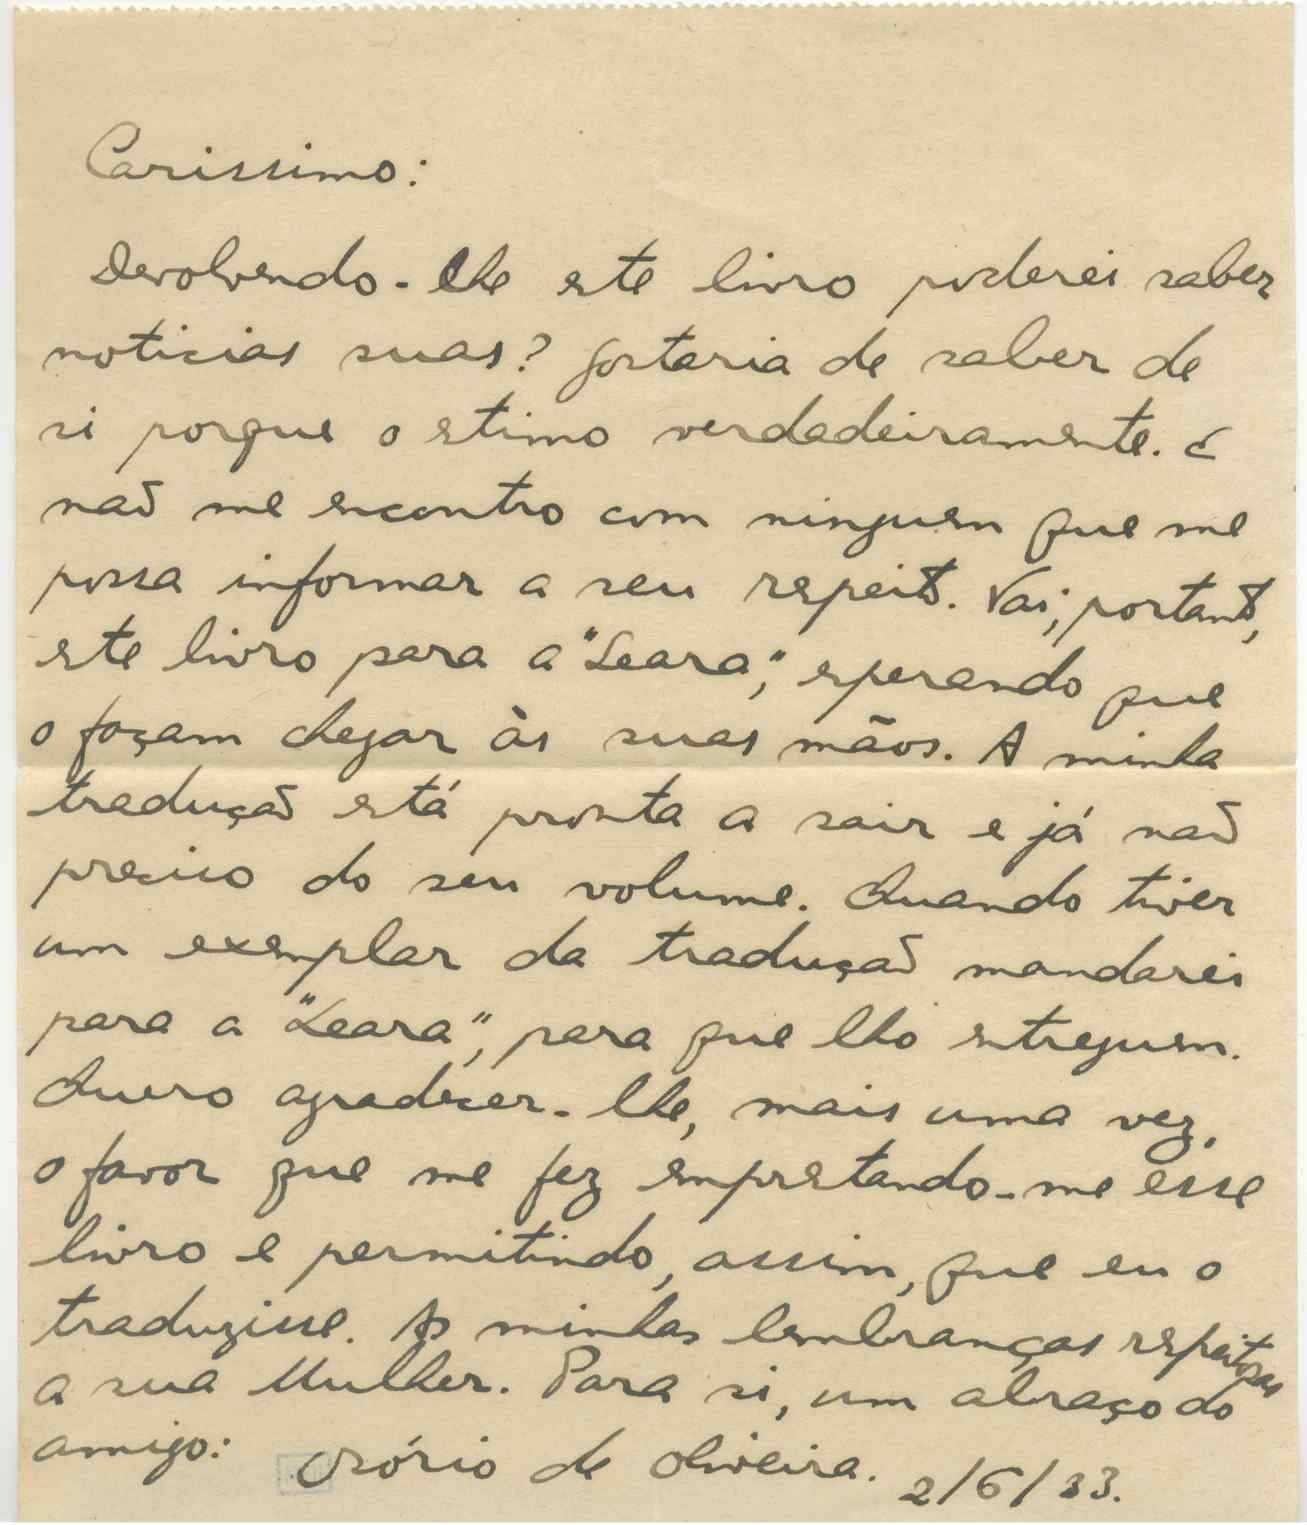 Carissimo:
Devolvendo-lhe este livro poderei saber
noticias suas? Gostaria de saber de
si porque o estimo verdadeiramente. E
naõ me encontro com ninguem que me
possa informar a seu respeito. Vai, portanto,
este livro para a "Seara", esperando que
o façam chegar às suas mãos. A minha
traduçaõ está pronta a sair e já naõ
preciso do seu volume. Quando tiver
um exemplar da traduçaõ mandarei
para a "Seara", para que lho entreguem.
Quero agradecer-lhe, mais uma vez,
o favor que me fez emprestando-me esse
livro e permitindo, assim, que eu o
traduzisse. As minhas lembranças respeitosas
a sua Mulher. Para si, um abraço do
amigo: Osório de Oliveira. 2/6/33.